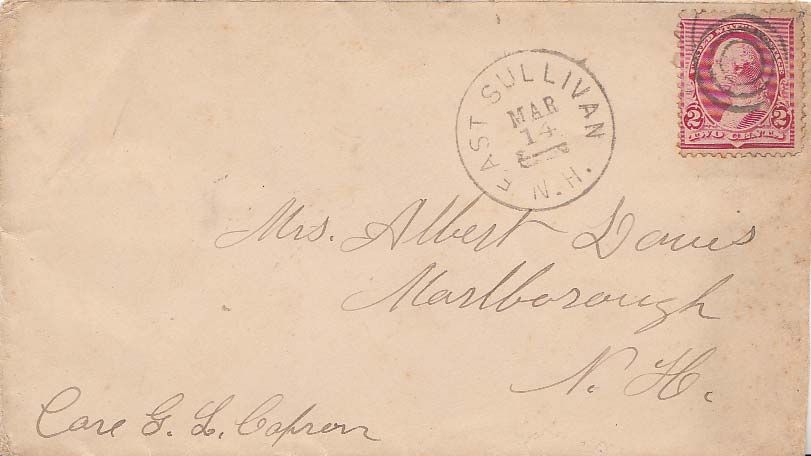 EAST SULLIVAN
MAR
14
N.H.
UNITED STATES POSTAGE
2 2
TWO CENTS
Mrs. Albert Davis
Marlborough
N. H.
Care G. L. Capron